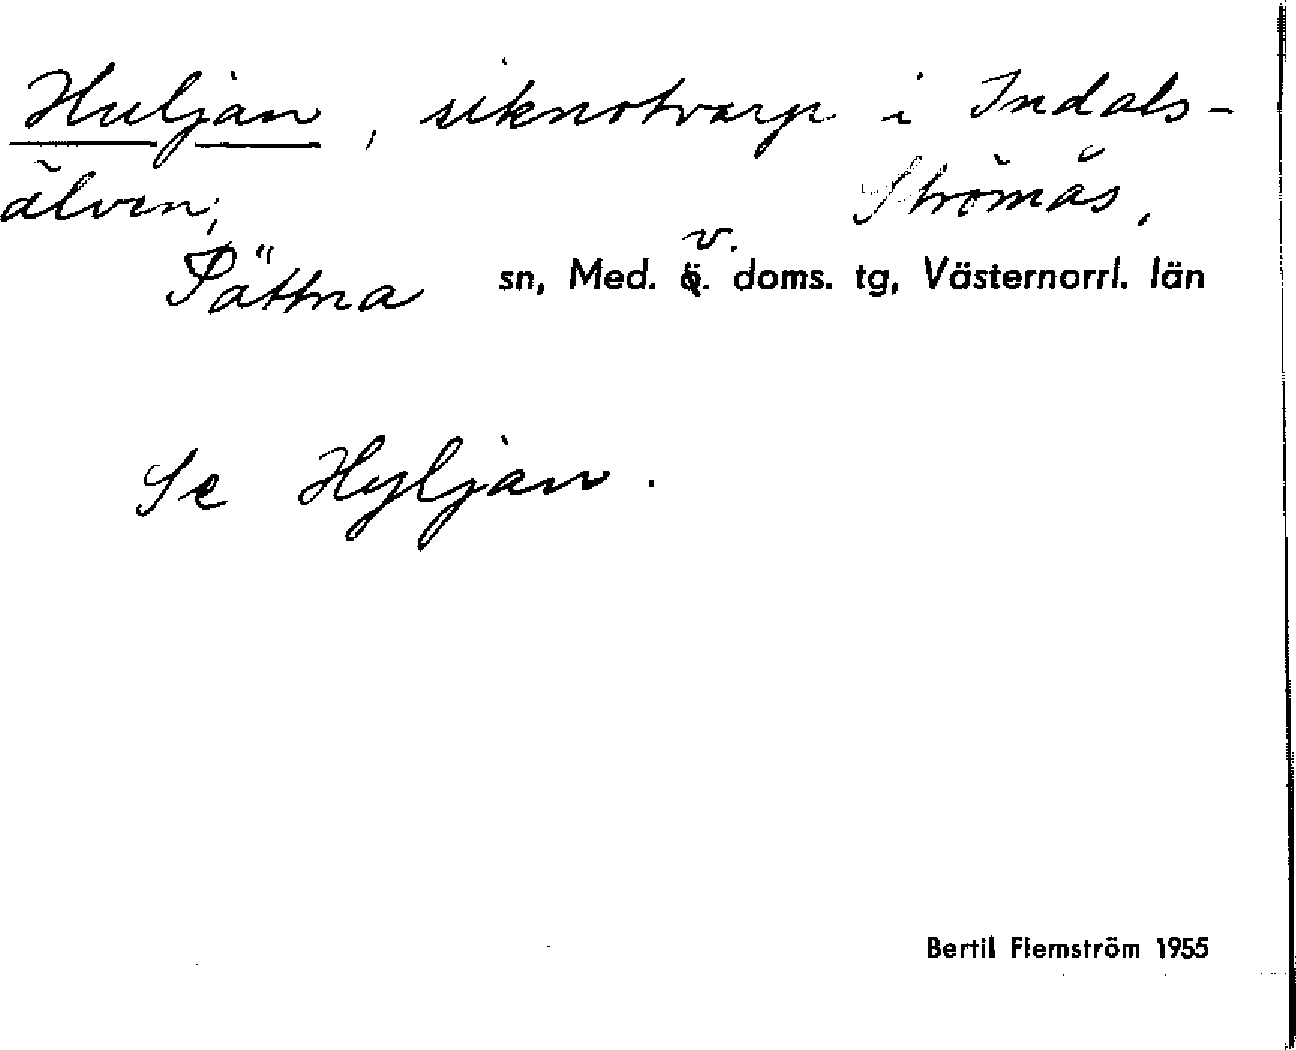 Huljan, siknotvarp i Indals-
älven, Strömås,
Pättna sn, Med. v. doms. tg, Västernorrl. län
Se Hyljan.
Bertil Flemström 1955